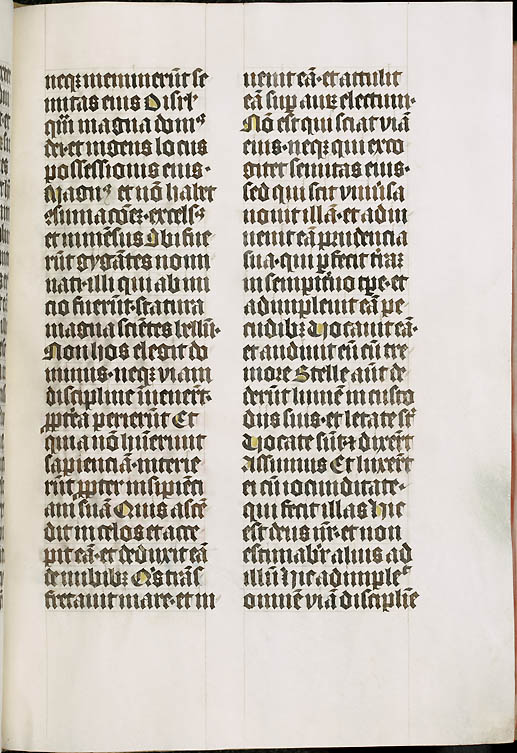 neq₃ meminerūt se
mitas eius O isrl'
qm̄ magna dom⁹
dei·et ingens locus
possessionis eius·
Magn⁹ et nō habet
ꝯsumacōe₃·excels⁹
et immēsus Ibi fue
rūt gygātes nomi
nati·illi qui ab ini
cio fuerūt·statura
magna sciētes bellū·
Non hos elegit do
minus·neq₃ viam
discipline inuenerūt·
ꝓpt̄ea perierūt Et
quia nō hūerunt
sapienciā·interie
rūt ꝓpter insipiēci
am suā Quis ascē
dit in celos et acce
pit eā·et deduxit eā
de nubib₃ Q's trāſ
fretauit mare·et in
uenit eā·et attulit
eā sup̄ auꝝ electum·
Nō est qui sciat viā
eius·neq₃ qui exco
gitet semitas eius·
sed qui scit vniūsa
nouit illā·et adin
uenit eā prudencia
sua·qui p̄fecit t̄raꝫ
in sempit̄no tꝑe·et
adimpleuit eā pe
cudib₃ Vocauit eā·
et audiuit eū cū tre
more Stelle aūt de
derūt lumē in custo
diis suis·et letate st̄
Vocate sūt ⁊ dixerūt
Assumus Et luxerūt
ei cū iocunditate·
qui fecit illas hic
est deus nr̄·et non
estimabīt̄ alius ad
illū hic adinple
omnē viā discipline